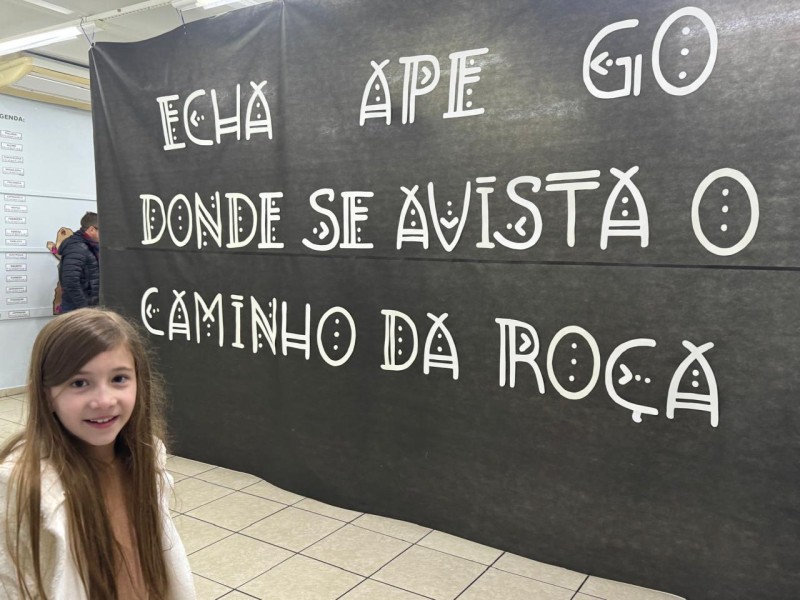 GENDA:
ECHA APE GO
DONDE SE AVISTA O
CAMINHO DA ROÇA